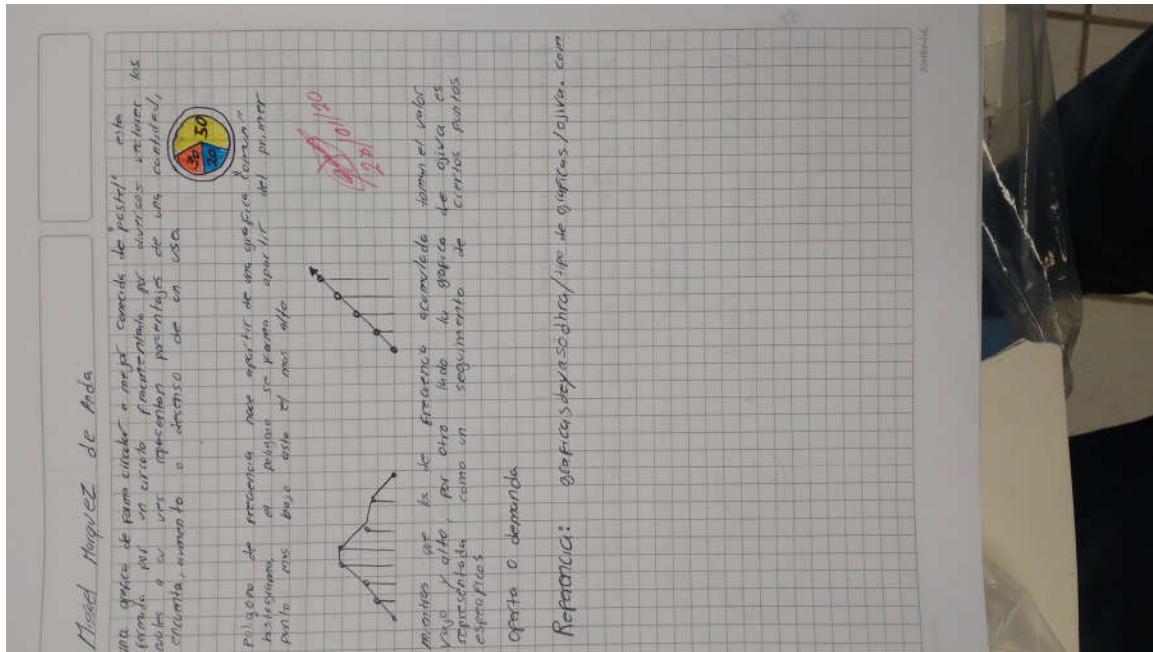 Misael Marquez de Anda
una grafica de forma circular o mejor conocida de "pastel" esta
formada por un circulo fracmentado por diversos vectores los
cuales a su ves representan porcentajes de una cantidad,
encuenta, aumento o desenso de un uso.
30
50
20
Poligono de frecuencia nace apartir de una grafica "comun"
histograma, el poligono se forma apartir del primer
punto mas bajo asta el mas alto
20/01/20
mientras que la de frecuencia acomulada toman el valor
vajo y alto, por otro lado la grafica de ojiva es
representada como un seguimento de ciertos puntos
espesificos
Oferta o demanda
Referencia: graficasdeyasodhra/tipo de graficas/ojiva.com